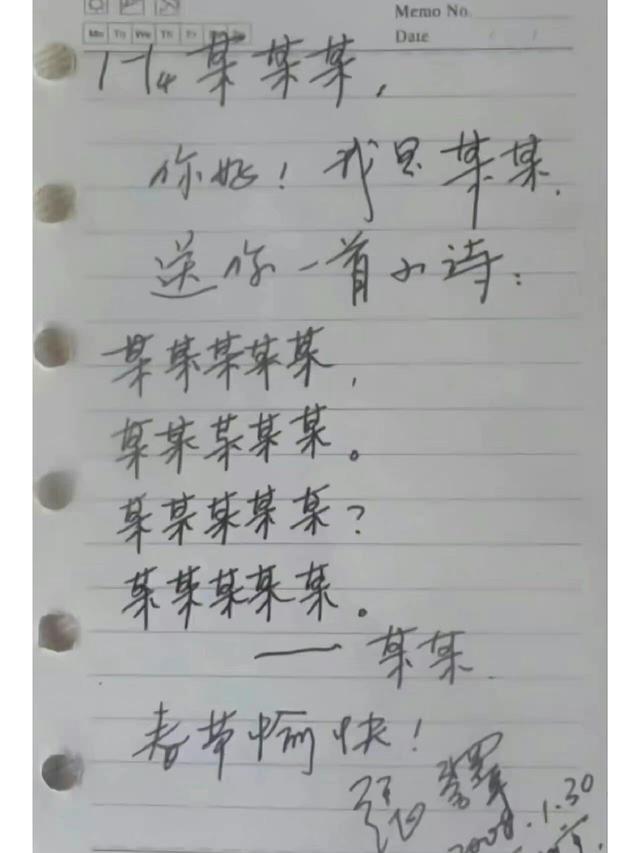 Memo No.
Mo Tu We Th Fr
Date / /
174某某某,
你好！我是某某.
送你一首小诗：
某某某某某,
某某某某某。
某某某某某？
某某某某某。
——某某.
春节愉快！
2008.1.30